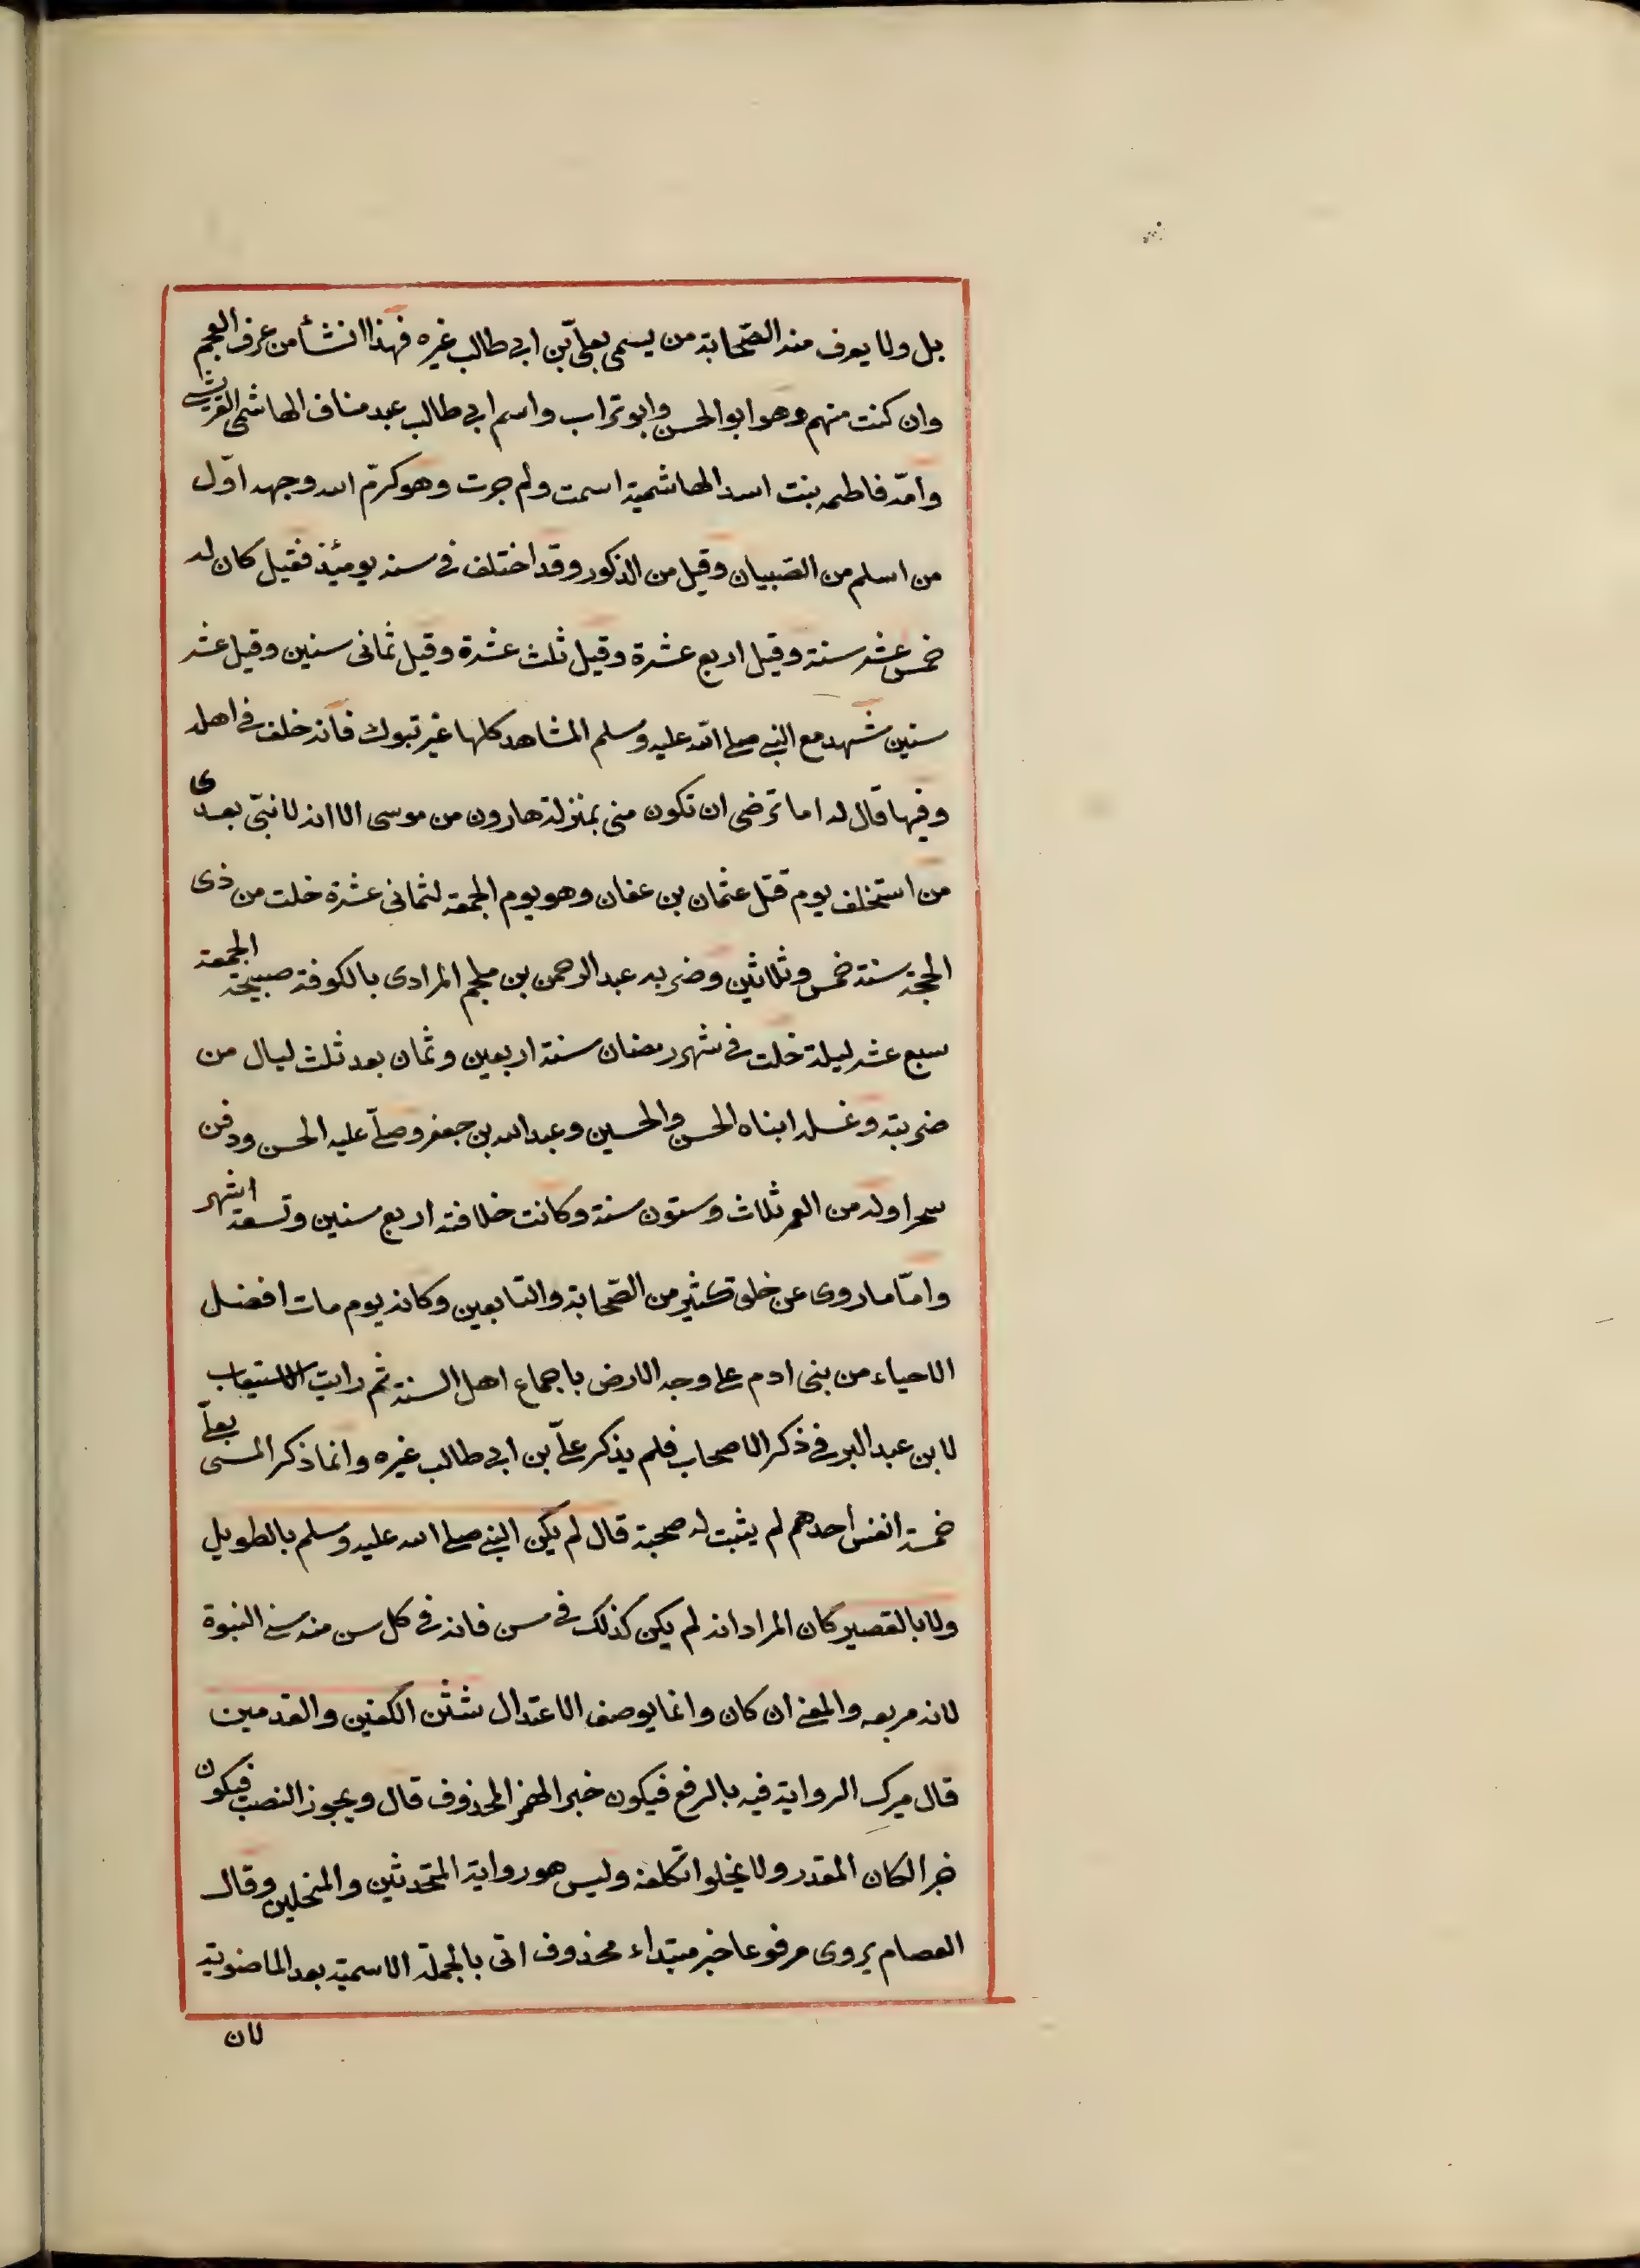 بل ولا يعرف منه الصّحابة من يسمى بعلىّ بن ابى طالب غيره فهذا انشأ من عرف العجم
وان كنت منهم وهو ابو الحسن وابو تراب واسم ابى طالب عبد مناف الهاشمى القرشى
وامّه فاطمه بنت اسد الهاشمية اسمت ولم جرت وهو كرّم الله وجهه اوّل
من اسلم من الصّبيان وقيل من الذكور وقد اختلف فى سنه يومئذ فقيل كان له
خمس عشر سنة وقيل اربع عشرة وقيل ثلث عشرة وقيل ثمانى سنين وقيل عشر
سنين شهد مع النبى صلى الله عليه وسلم المشاهد كلها غير تبوك فانه خلف فى اهله
وفيها قال له اما ترضى ان تكون منى بمنزلة هارون من موسى الا انه لا نبىّ بعدى
من استخلف يوم قتل عثمان بن عفان وهو يوم الجمعة لثمانى عشرة خلت من ذى
الحجة سنة خمس وثلاثين وضربه عبد الرحمن بن ملجم المرادى بالكوفة صبيحة الجمعة
سبع عشر ليلة خلت فى شهر رمضان سنة اربعين وثمان بعد ثلث ليال من
ضربته وغسله ابناه الحسن والحسين وعبد الله بن جعفر وصلّى عليه الحسن ودفن
سحرا وله من العمر ثلاث وستون سنة وكانت خلافته اربع سنين وتسعة اشهر
وامّا ما روى عن خلق كثير من الصّحابة والتابعين وكانه يوم مات افضل
الاحياء من بنى ادم على وجه الارض باجماع اهل السنة ثم رايت الاستيعاب
لابن عبد البر فى ذكر الاصحاب فلم يذكر علىّ بن ابى طالب غيره وانما ذكر المسمى بعلىّ
خمسة انفس احدهم لم يثبت له صحبة قال لم يكن النبى صلى الله عليه وسلم بالطويل
ولا بالقصير كان المراد انه لم يكن كذلك فى سن فانه فى كل سن منه سنى النبوة
لانه مربعه والمعنى ان كان وانما يوصف الاعتدال شثن الكفين والقدمين
قال ميرك الرواية فيه بالرفع فيكون خبر الهمز المحذوف قال ويجوز النصب فيكون
خبر الكان المقدر ولا يخلو اتكلفه وليس هو رواية المتحدثين والمنحلين وقال
العصام يروى مرفوعا خبر مبتداء محذوف اتى بالجملة الاسمية بعد الماضوية
لان